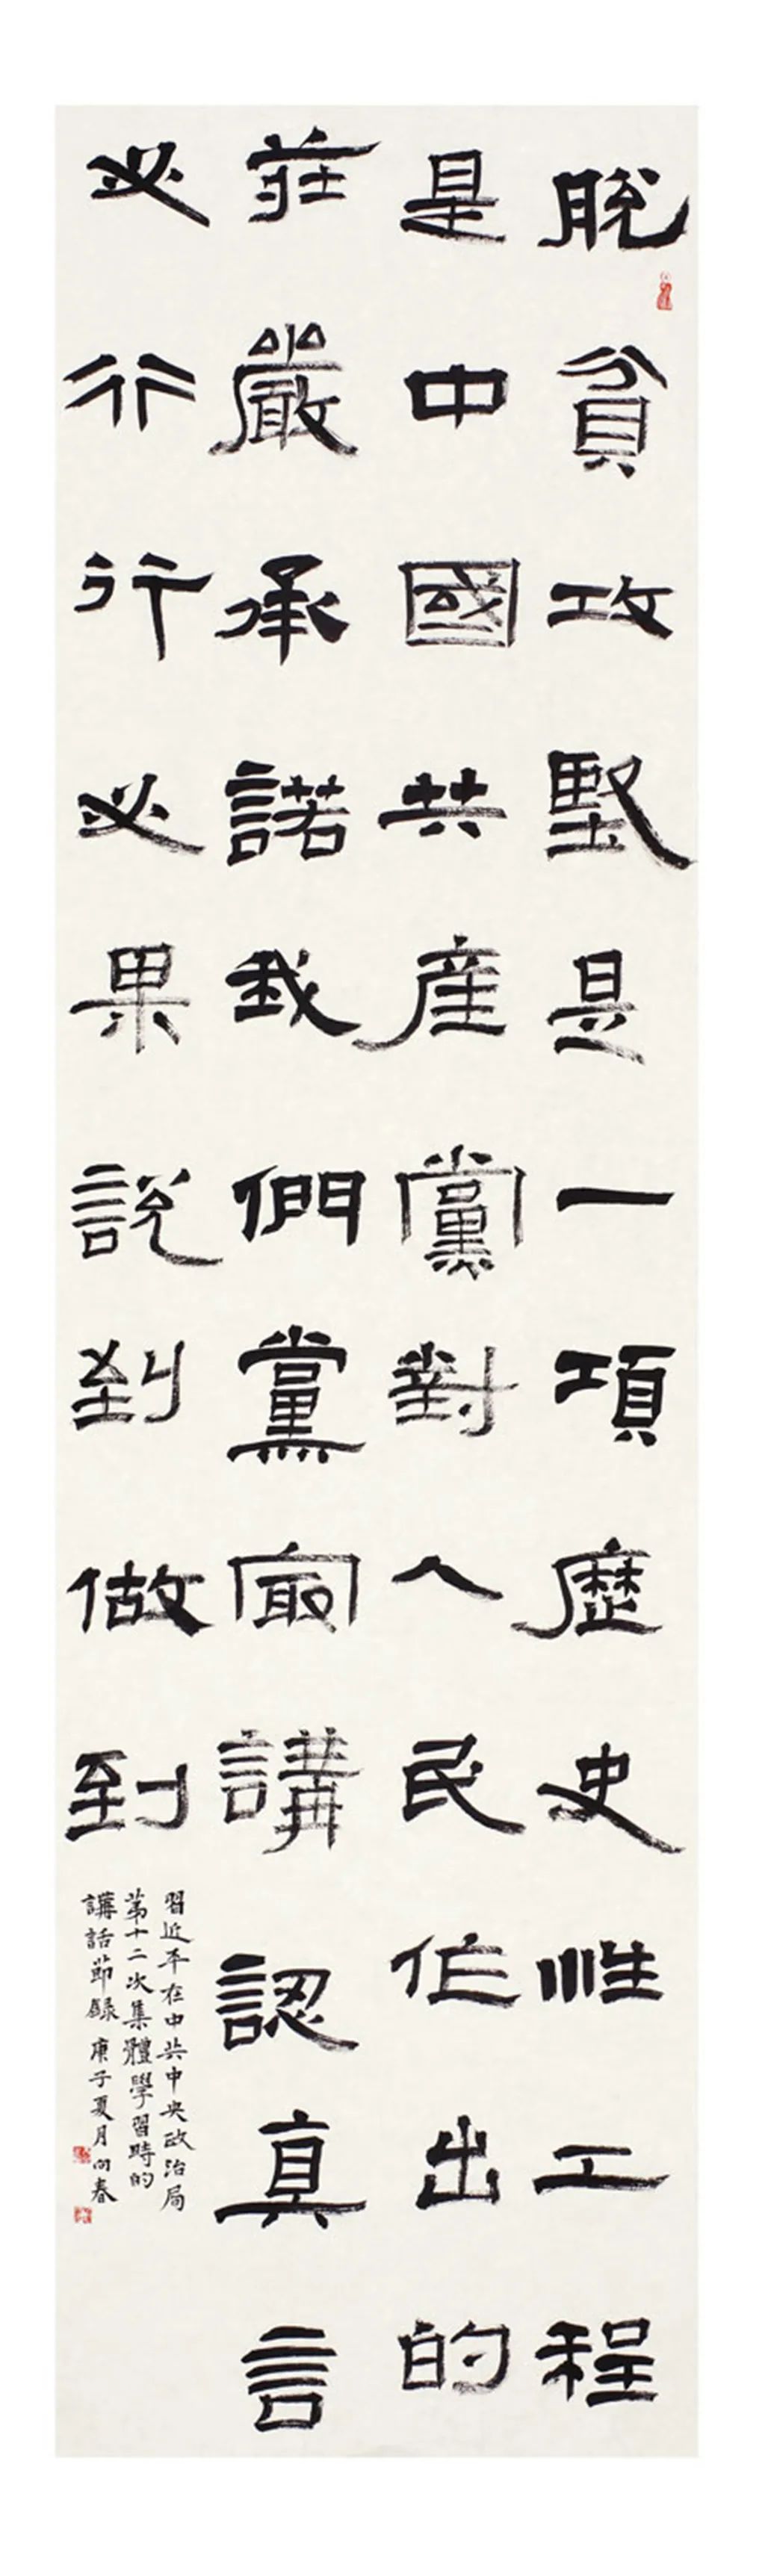 脫貧攻堅是一項歷史性工程
是中國共產黨對人民作出的
莊嚴承諾我們黨最講認真言
必行行必果說到做到
習近平在中共中央政治局
第十二次集體學習時的
講話節錄 庚子夏月向春